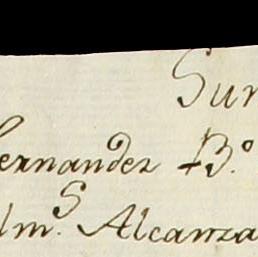 Sur
ernandez B.º
lm.s Alcanza